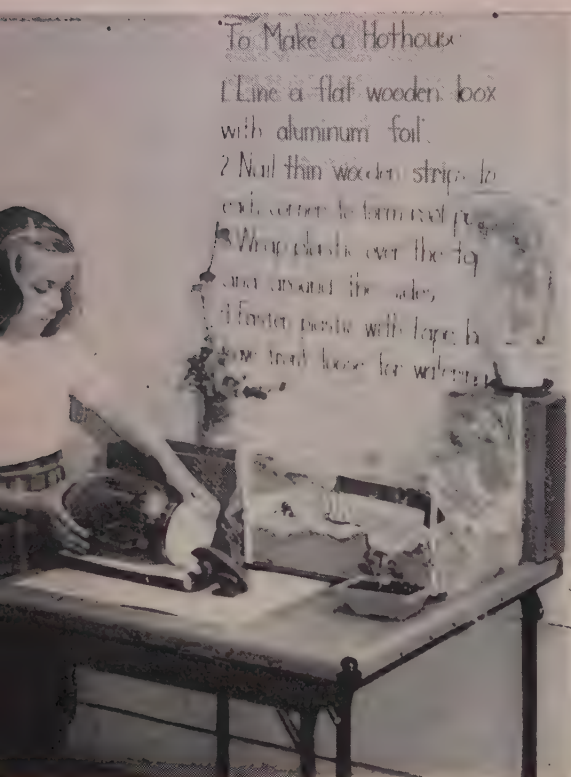 To Make a Hothouse
1 Line a flat wooden box
with aluminum foil.
2 Nail thin wooden strips to
each corner to form roof
3 Wrap plastic over the top
and around the sides
4 Fasten plastic with tape
front loose for watering